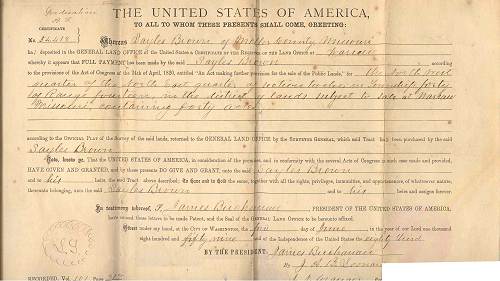 THE UNITED STATES OF AMERICA,
TO ALL TO WHOM THESE PRESENTS SHALL COME, GREETING:
CERTIFICATE
No 24418
Whereas Sayles Brown of Miller County Missouri
ha deposited in the GENERAL LAND OFFICE of the United States a CERTIFICATE OF THE REGISTER OF THE LAND OFFICE at Warsaw
whereby it appears that FULL PAYMENT has been made by the said Sayles Brown according
to the provisions of the Act of Congress of the 24th of April, 1820, entitled "An Act making further provision for the sale of the Public Lands," for the North West
quarter of the North East quarter of section twelve in Township forty
of Range fourteen in the district of lands subject to sale at Warsaw
Missouri, containing forty acres
according to the Official Plat of the Survey of the said lands, returned to the GENERAL LAND OFFICE by the SURVEYOR GENERAL, which said Tract has been purchased by the said
Sayles Brown
Now, know ye, That the UNITED STATES OF AMERICA, in consideration of the premises, and in conformity with the several Acts of Congress in such case made and provided,
HAVE GIVEN AND GRANTED, and by these presents DO GIVE AND GRANT, unto the said Sayles Brown
and to his heirs, the said Tract above described: To Have and to Hold the same, together with all the rights, privileges, immunities, and appurtenances, of whatsoever nature,
thereunto belonging, unto the said Sayles Brown and to his heirs and assigns forever.
In testimony whereof, I James Buchanan PRESIDENT OF THE UNITED STATES OF AMERICA,
have caused these letters to be made Patent, and the Seal of the GENERAL LAND OFFICE to be hereunto affixed.
Given under my hand, at the CITY OF WASHINGTON, the day of June in the year of our Lord one thousand
eight hundred and fifty nine and of the Independence of the United States the eighty third
BY THE PRESIDENT: James Buchanan
By
RECORDED, Vol. Page